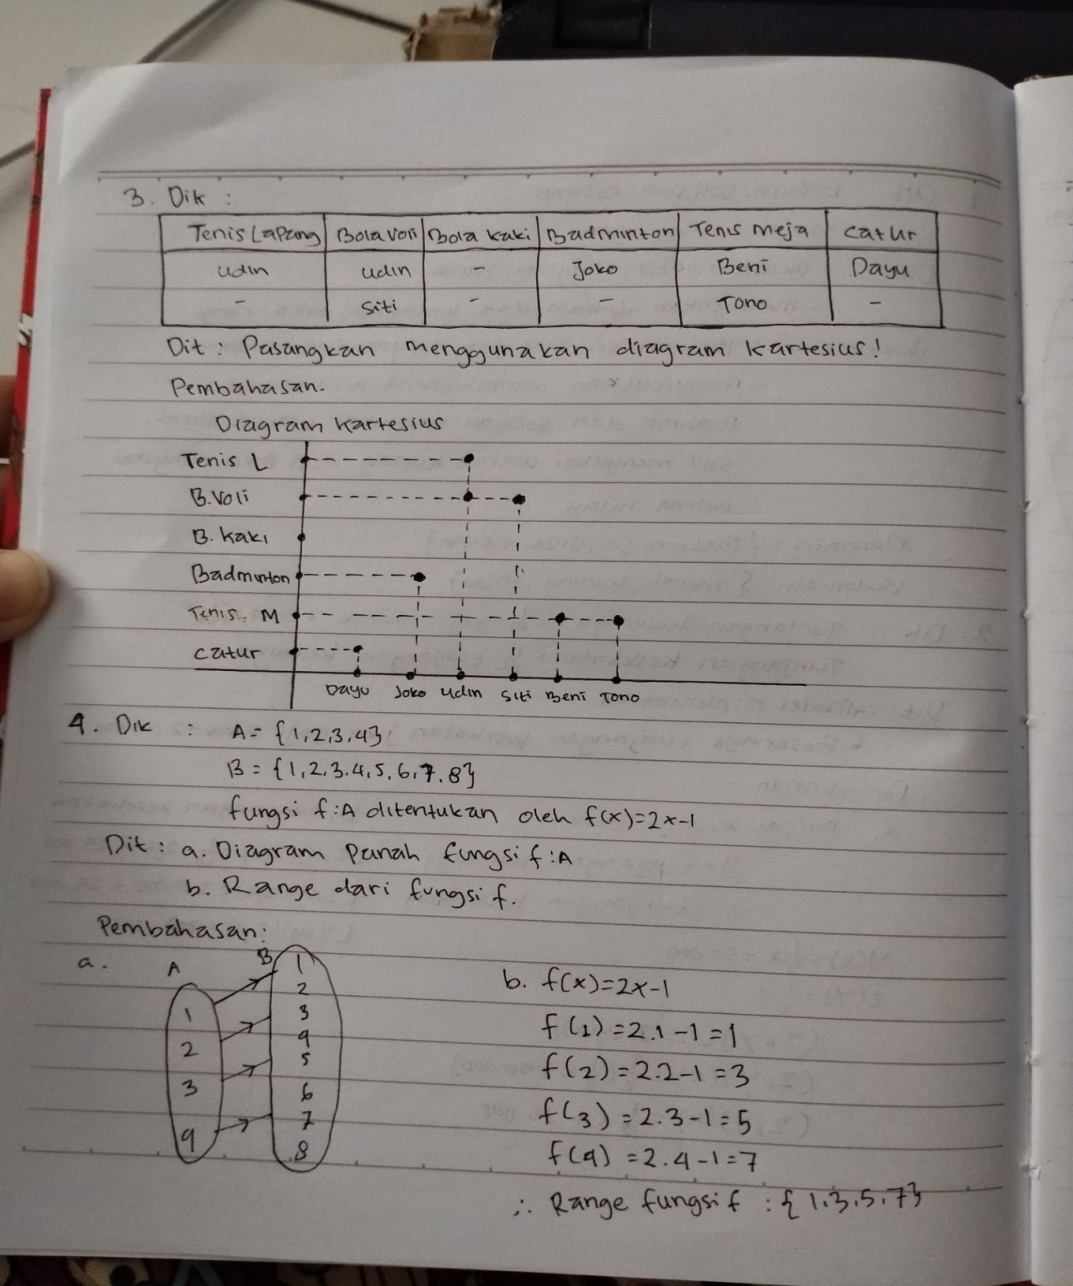 3. Dik :
Tenis Lapang Bola voli Bola kaki Badminton Tenis meja catur
udin udin - Joko Beni Dayu
- siti - - Tono -
Dit : Pasangkan menggunakan diagram kartesius!
Pembahasan:
Diagram kartesius
Tenis L
B.Voli
B. kaki
Badminton
Tenis. M
catur
Dayu Joko udin siti Beni Tono
4. Dik : A = {1,2,3,4}
B = {1,2,3,4,5,6,7,8}
fungsi f:A ditentukan oleh f(x)=2x-1
Dit : a. Diagram Panah fungsi f:A
b. Range dari fungsi f.
Pembahasan:
a. A B
1 2 3 4
1 2 3 4 5 6 7 8
b. f(x)=2x-1
f(1)=2.1-1=1
f(2)=2.2-1=3
f(3)=2.3-1=5
f(4)=2.4-1=7
∴ Range fungsi f : {1,3,5,7}